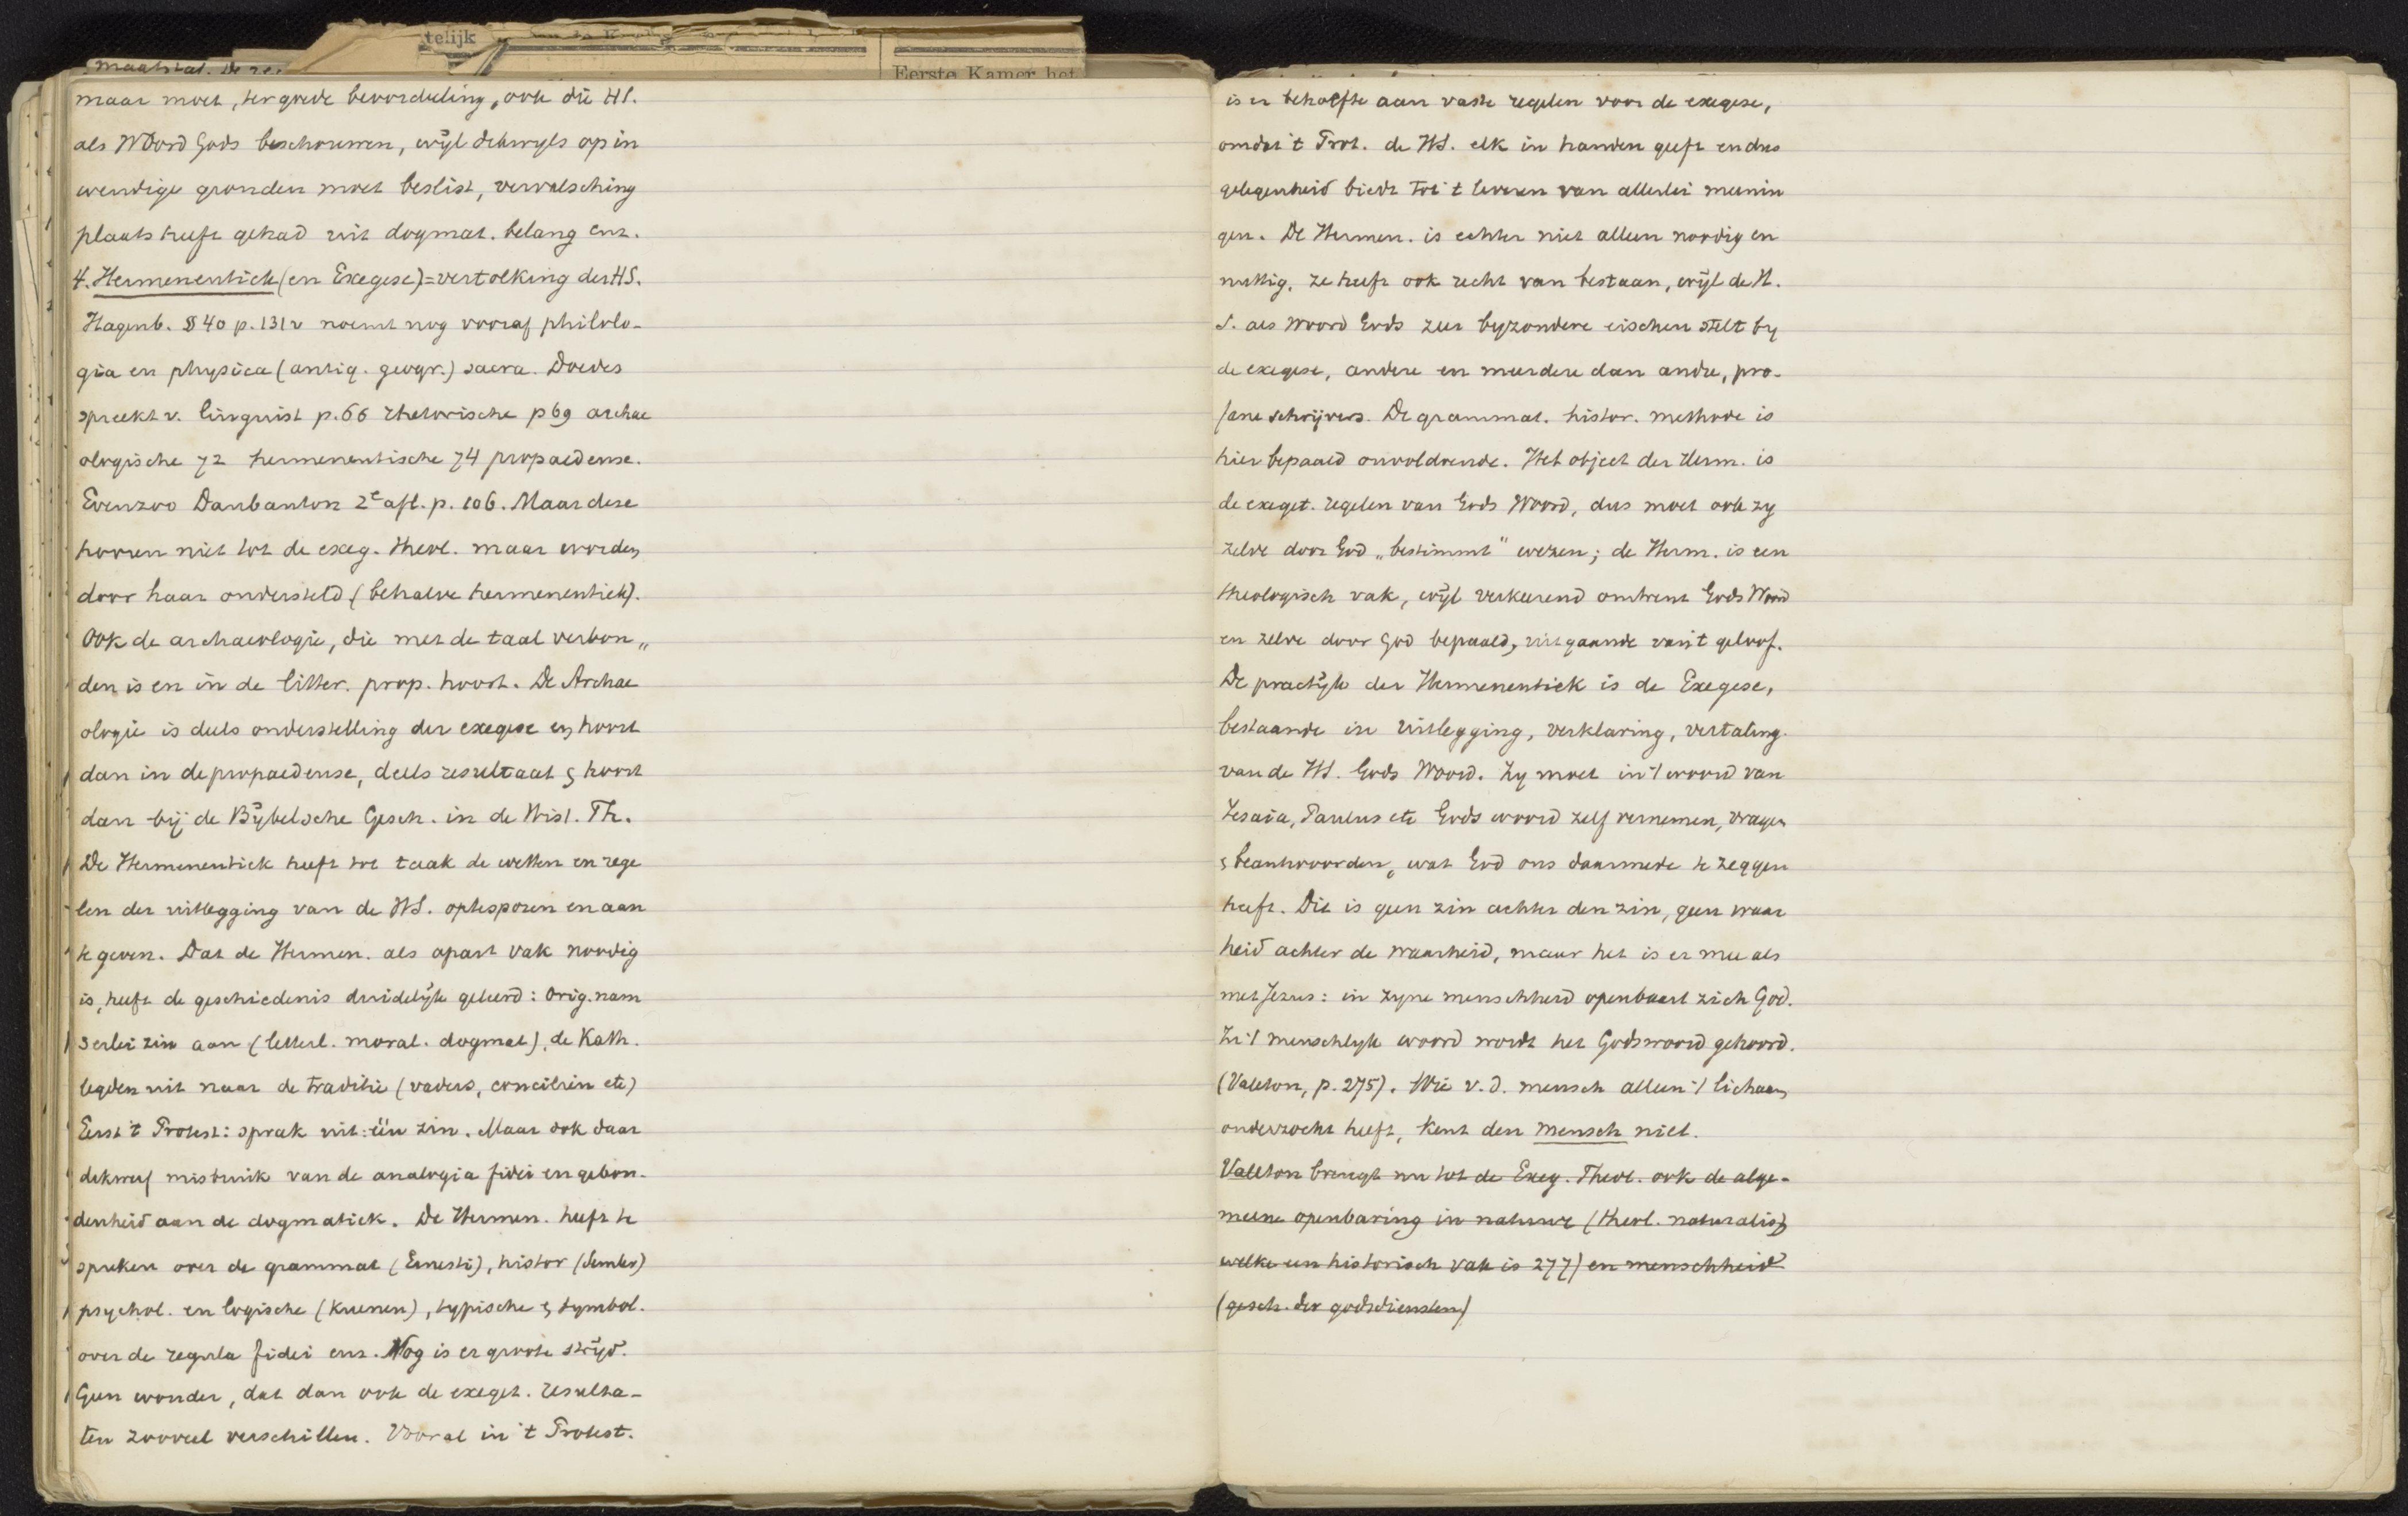 telijk
Eerste Kamer het
maatstaf. De
maar moet, ter goede beoordeeling, ook die HS.
als Woord Gods beschouwen, wijl dikwyls op in
wendige gronden moet beslist, vervalsching
plaats heeft gehad uit dogmat. belang enz.
4. Hermeneutiek (en Exegese) = vertolking der HS.
Hagenb. § 40 p. 131v noemt nog vooraf philolo-
gia en physica (antiq. geogr.) sacra. Doedes
spreekt v. linguist p. 66 rhetorische p 69 archae
ologische 72 hermeneutische 74 propaedeuse.
Evenzoo Daubanton 2e afl. p. 106. Maar deze
hooren niet tot de exeg. theol. maar worden
door haar ondersteld (behalve hermeneutiek).
Ook de archaeologie, die met de taal verbon„
den is en in de litter. prop. hoort. De Archae
ologie is deels onderstelling der exegese en hoort
dan in de propaedeuse, deels resultaat & hoort
dan bij de Bijbelsche Gesch. in de Hist. Th.
De Hermeneutiek heeft tot taak de wetten en rege
len der uitlegging van de HS. optesporen en aan
te geven. Dat de Hermen. als apart vak noodig
is, heeft de geschiedenis duidelijk geleerd: Orig. nam
3erlei zin aan (letterl. moral. dogmat), de Kath.
legden uit naar de traditie (vaders, conciliën etc)
Eerst 't Protest: sprak uit: één zin. Maar ook daar
dikwerf misbruik van de analogia fidei en gebon-
denheid aan de dogmatiek. De Hermen. heeft te
spreken over de grammat (Ernesti), histor (Semler)
psychol. en logische (Kuenen), typische & symbol.
over de regula fidei enz. Nog is er groote strijd.
Geen wonder, dat dan ook de exeget. resulta-
ten zooveel verschillen. Vooral in 't Protest.
is er behoefte aan vaste regelen voor de exegese,
omdat 't Prot. de HS. elk in handen geeft en dus
gelegenheid biedt tot 't leveren van allerlei meenin
gen. De Hermen. is echter niet alleen noodig en
nuttig, ze heeft ook recht van bestaan, wijl de H.
S. als Woord Gods zeer byzondere eischen stelt by
de exegese, andere en meerdere dan andre, pro-
fane schrijvers. De grammat. histor. methode is
hier bepaald onvoldoende. Het object der Herm. is
de exeget. regelen van Gods Woord, dus moet ook zy
zelve door God „bestimmt" wezen; de Herm. is een
theologisch vak, wijl verkeerend omtrent Gods Woord
en zelve door God bepaald, uitgaande van 't geloof.
De practijk der Hermeneutiek is de Exegese,
bestaande in uitlegging, verklaring, vertaling
van de HS. Gods Woord. Zy moet in 't woord van
Jesaia, Paulus etc Gods woord zelf vernemen, vragen
& beantwoorden, wat God ons daarmede te zeggen
heeft. Dit is geen zin achter den zin, geen waar
heid achter de waarheid, maar het is er mee als
met Jezus: in zyne menschheid openbaart zich God.
In 't menschlyk woord wordt het Godswoord gehoord.
(Valeton, p. 275). Wie v. d. mensch alleen 't lichaam
onderzocht heeft, kent den mensch niet.
Valeton brengt nu tot de Exeg. Theol. ook de alge-
meene openbaring in natuur (theol. naturalis,
welke een historisch vak is 277) en menschheid
(gesch. der godsdiensten)